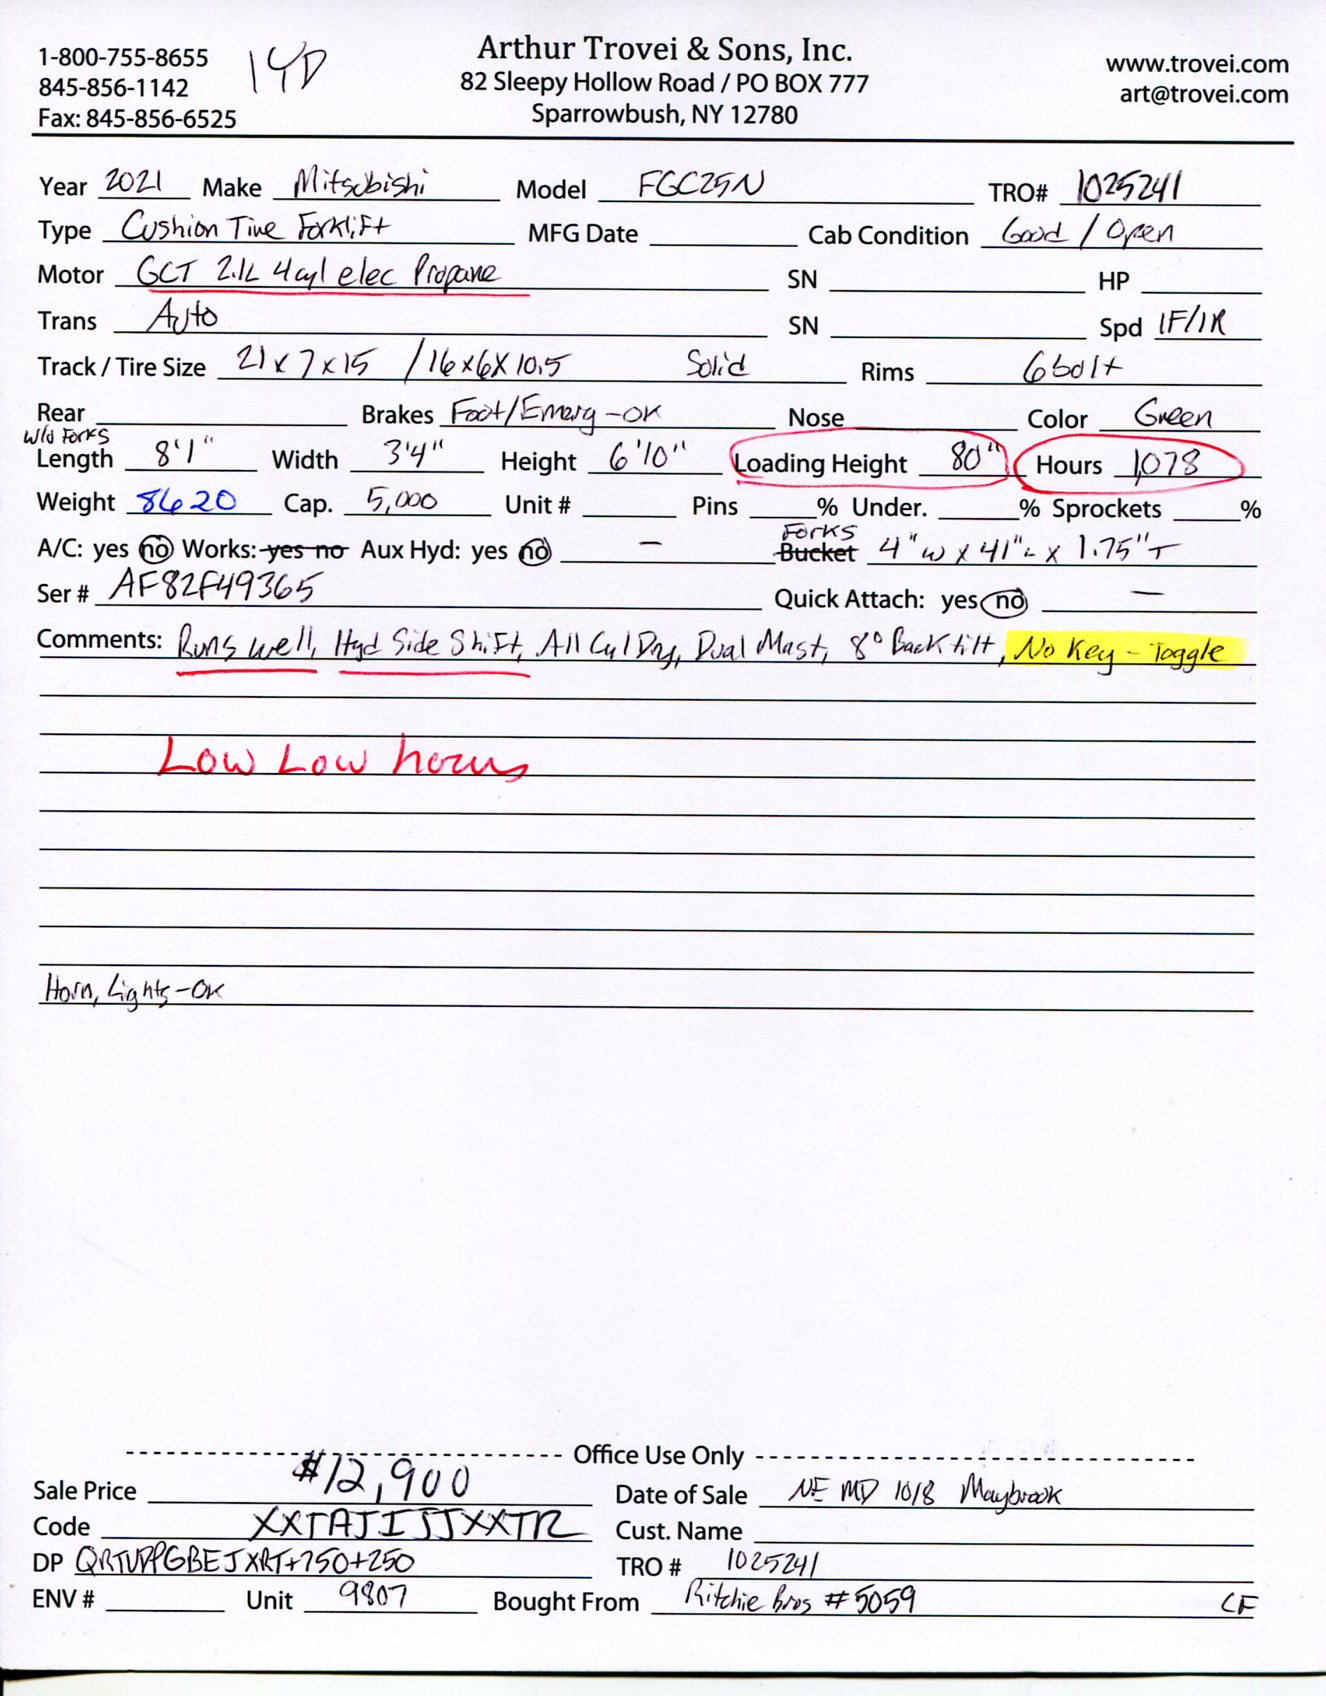 1-800-755-8655
845-856-1142
Fax: 845-856-6525
14D
Arthur Trovei & Sons, Inc.
82 Sleepy Hollow Road / PO BOX 777
Sparrowbush, NY 12780
www.trovei.com
art@trovei.com
Year 2021 Make Mitsubishi Model FGC25N TRO# 1025241
Type Cushion Tire Forklift MFG Date Cab Condition Good / Open
Motor GCT 2.1L 4cyl elec Propane SN HP
Trans Auto SN Spd 1F/1R
Track / Tire Size 21 x 7 x 15 / 16x6x10.5 Solid Rims 6 bolt
Rear Brakes Foot/Emerg-OK Nose Color Green
w/o Forks
Length 8'1" Width 3'4" Height 6'10" Loading Height 80" Hours 1,078
Weight 8620 Cap. 5,000 Unit # Pins % Under. % Sprockets %
A/C: yes no Works: yes no Aux Hyd: yes no — Forks Bucket 4"w x 41"L x 1.75"T
Ser # AF82F49365 Quick Attach: yes no —
Comments: Runs well, Hyd Side Shift, All Cyl Dry, Dual Mast, 8° Back tilt, No Key - Toggle
Low Low hours
Horn, Lights-OK
Office Use Only
Sale Price $12,900 Date of Sale NE MD 10/8 Maybrook
Code Cust. Name
DP TRO # 1025241
ENV # Unit 9807 Bought From Ritchie Bros #5059 CF